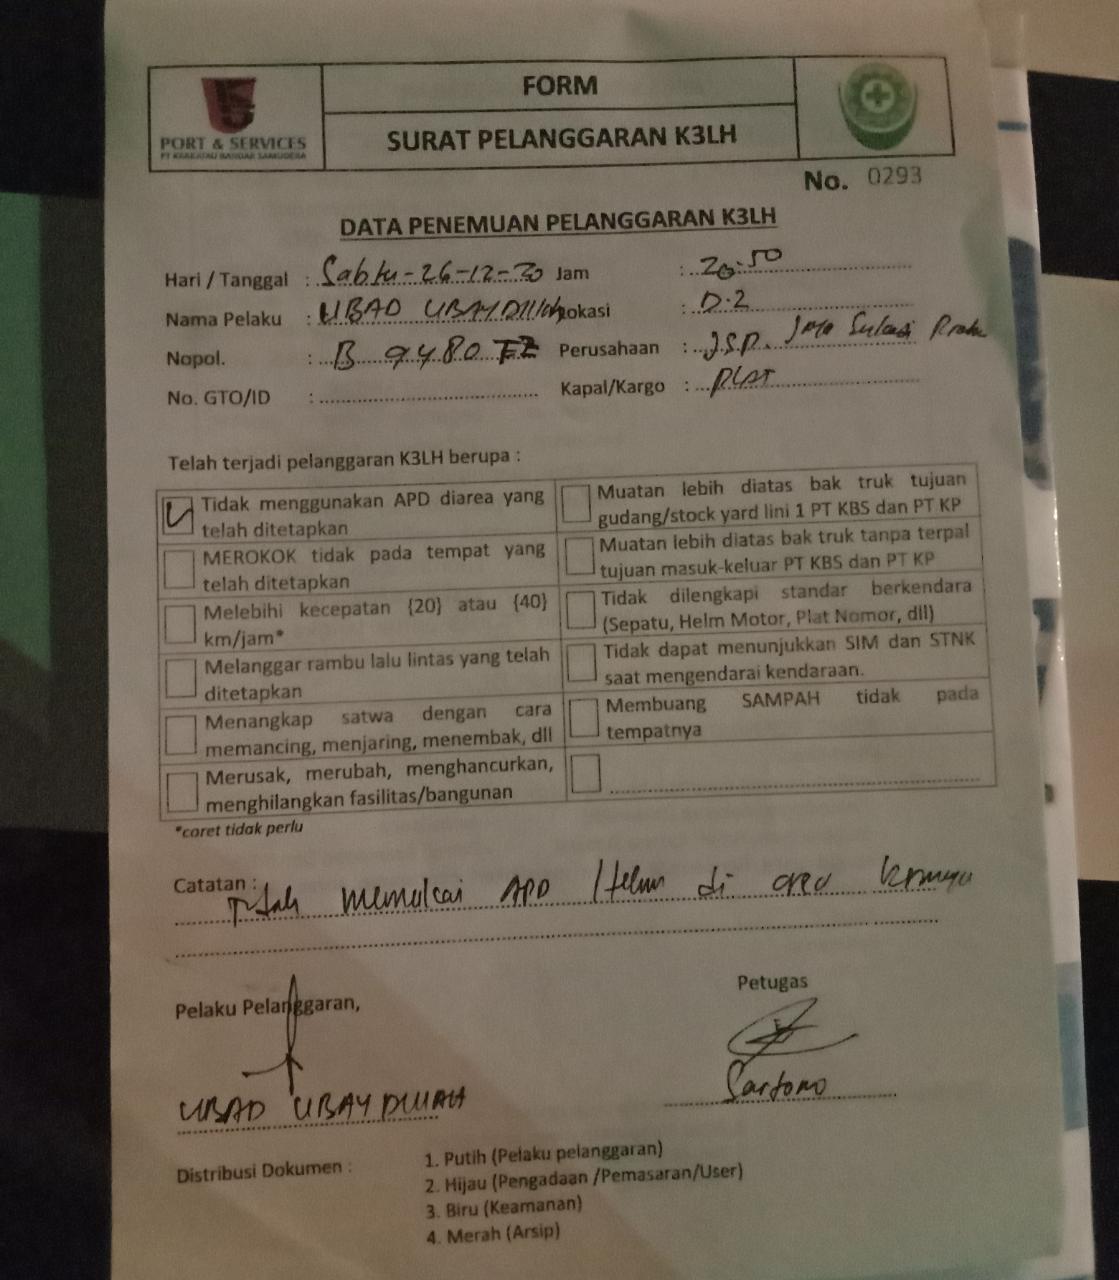 PORT & SERVICES
PT KRAKATAU BANDAR SAMUDERA
FORM
SURAT PELANGGARAN K3LH
No. 0293
DATA PENEMUAN PELANGGARAN K3LH
Hari / Tanggal : Sabtu-26-12-20 Jam : 20.50
Nama Pelaku : UBAD UBAYDILLAH Lokasi : D.2
Nopol. : B 9480 Perusahaan : J.S.P.
No. GTO/ID : Kapal/Kargo : PLAT
Telah terjadi pelanggaran K3LH berupa :
Tidak menggunakan APD diarea yang
telah ditetapkan
Muatan lebih diatas bak truk tujuan
gudang/stock yard lini 1 PT KBS dan PT KP
MEROKOK tidak pada tempat yang
telah ditetapkan
Muatan lebih diatas bak truk tanpa terpal
tujuan masuk-keluar PT KBS dan PT KP
Melebihi kecepatan {20} atau {40}
km/jam*
Tidak dilengkapi standar berkendara
(Sepatu, Helm Motor, Plat Nomor, dll)
Melanggar rambu lalu lintas yang telah
ditetapkan
Tidak dapat menunjukkan SIM dan STNK
saat mengendarai kendaraan.
Menangkap satwa dengan cara
memancing, menjaring, menembak, dll
Membuang SAMPAH tidak pada
tempatnya
Merusak, merubah, menghancurkan,
menghilangkan fasilitas/bangunan
*coret tidak perlu
Catatan :
memakai APD / Helm di area
Pelaku Pelanggaran,
Petugas
UBAD UBAYDILLAH
Sartono
Distribusi Dokumen :
1. Putih (Pelaku pelanggaran)
2. Hijau (Pengadaan /Pemasaran/User)
3. Biru (Keamanan)
4. Merah (Arsip)